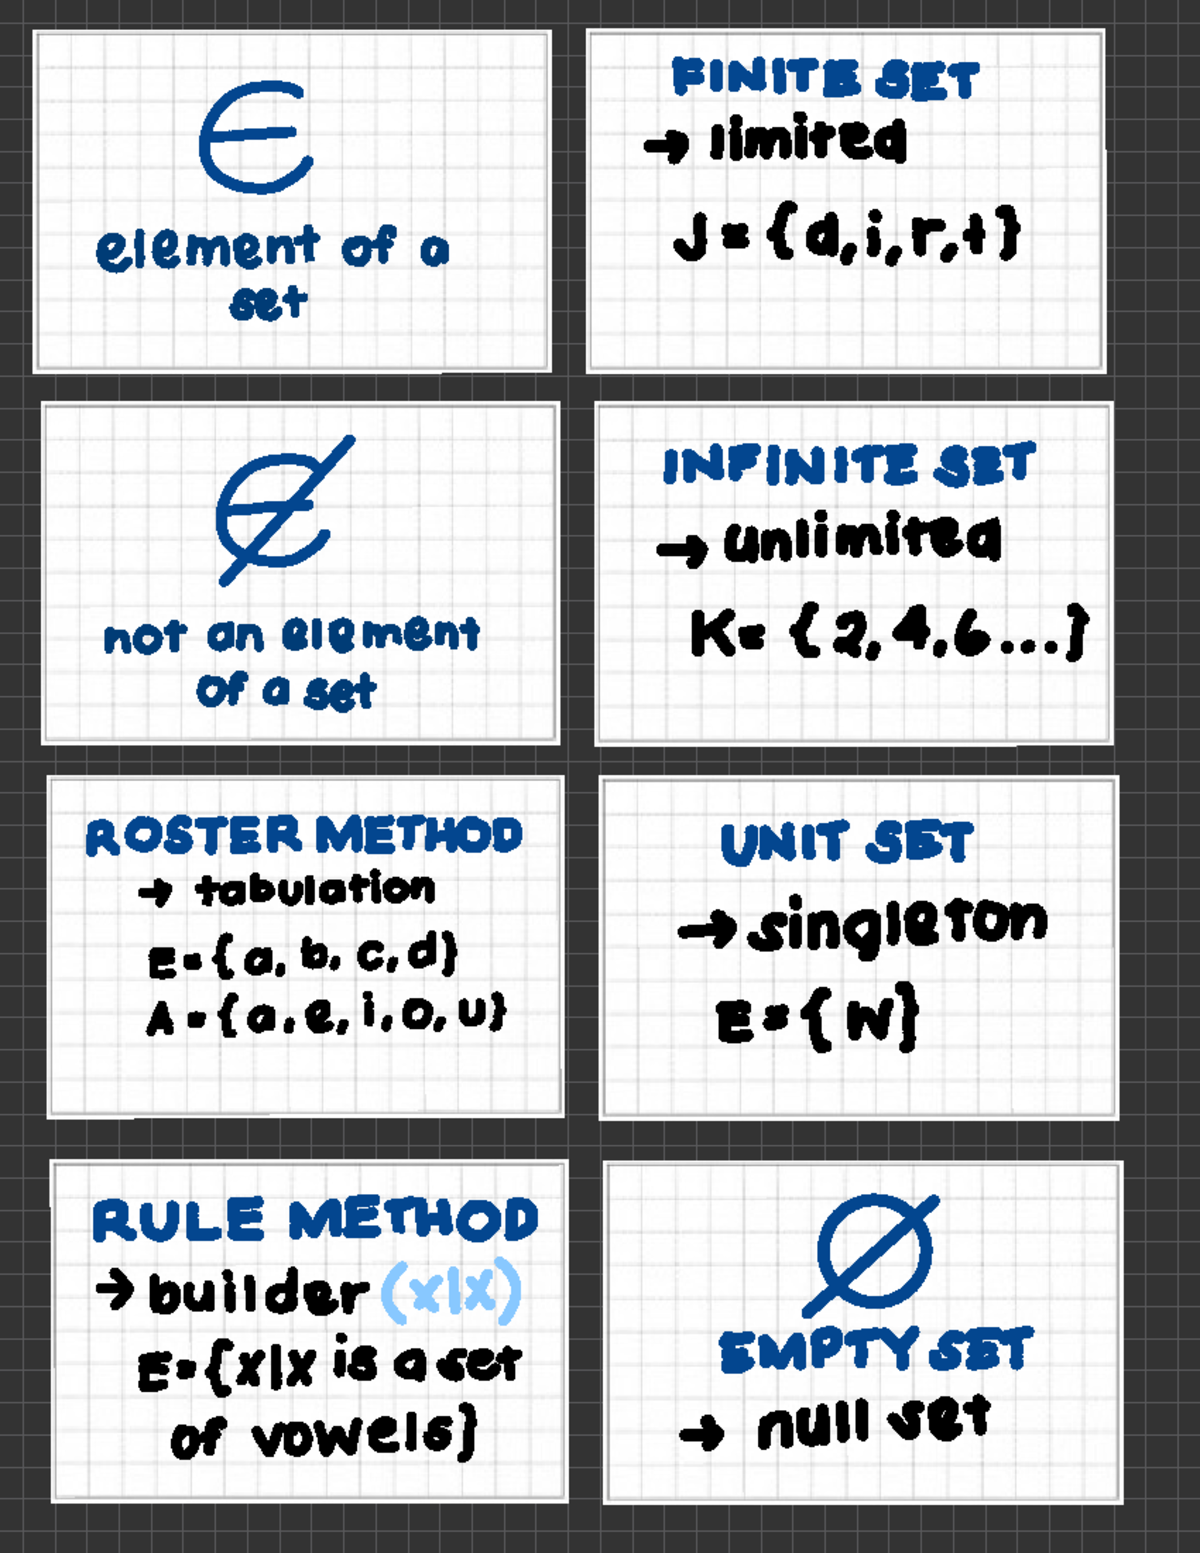 ∈
element of a
set
FINITE SET
→ limited
J = {d, i, r, t}
∉
not an element
of a set
INFINITE SET
→ unlimited
K = {2, 4, 6 ...}
ROSTER METHOD
→ tabulation
E = {a, b, c, d}
A = {a, e, i, o, u}
UNIT SET
→ singleton
E = {w}
RULE METHOD
→ builder (x|x)
E = {x|x is a set
of vowels}
∅
EMPTY SET
→ null set